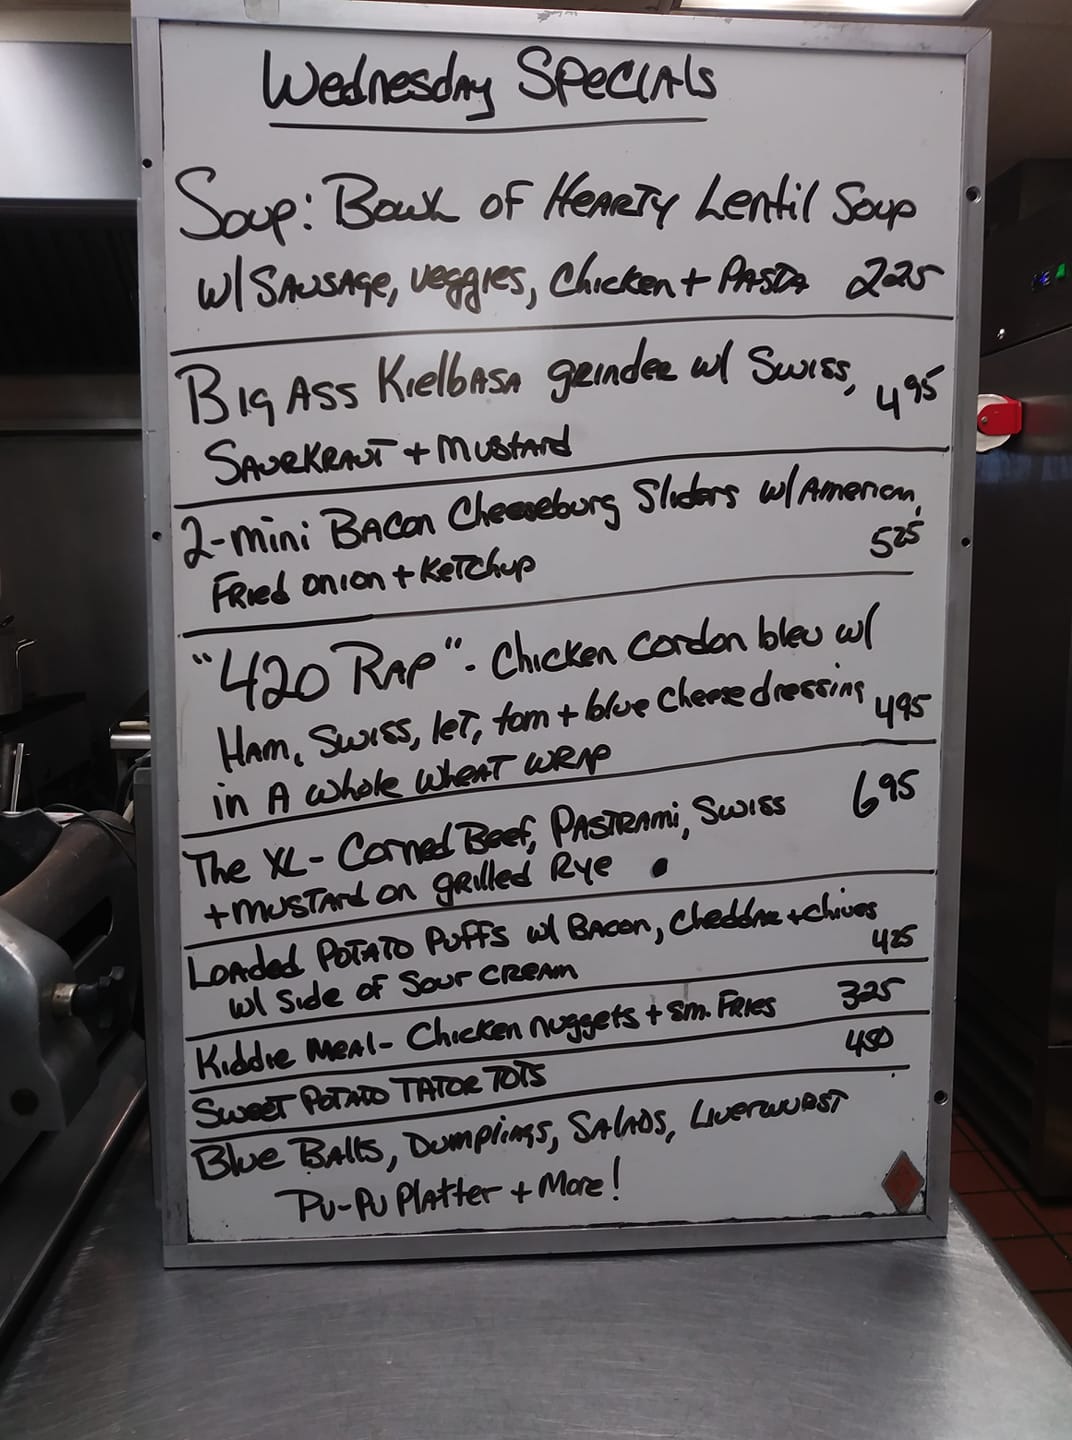 Wednesday Specials
Soup: Bowl of Hearty Lentil Soup
w/ Sausage, veggies, Chicken + Pasta 225
Big Ass Kielbasa grinder w/ Swiss, 495
Saurkraut + Mustard
2-mini Bacon Cheeseburg Sliders w/ American,
Fried onion + Ketchup 525
"420 Rap" - Chicken cordon bleu w/
Ham, Swiss, let, tom + blue cheese dressing 495
in A whole wheat wrap
The XL - Corned Beef, Pastrami, Swiss 695
+ mustard on grilled Rye
Loaded Potato Puffs w/ Bacon, Cheddar + chives
w/ side of Sour cream 425
Kiddie Meal - Chicken nuggets + sm. Fries 325
Sweet Potato Tator Tots 450
Blue Balls, Dumplings, Salads, Liverwurst
Pu-Pu Platter + More!